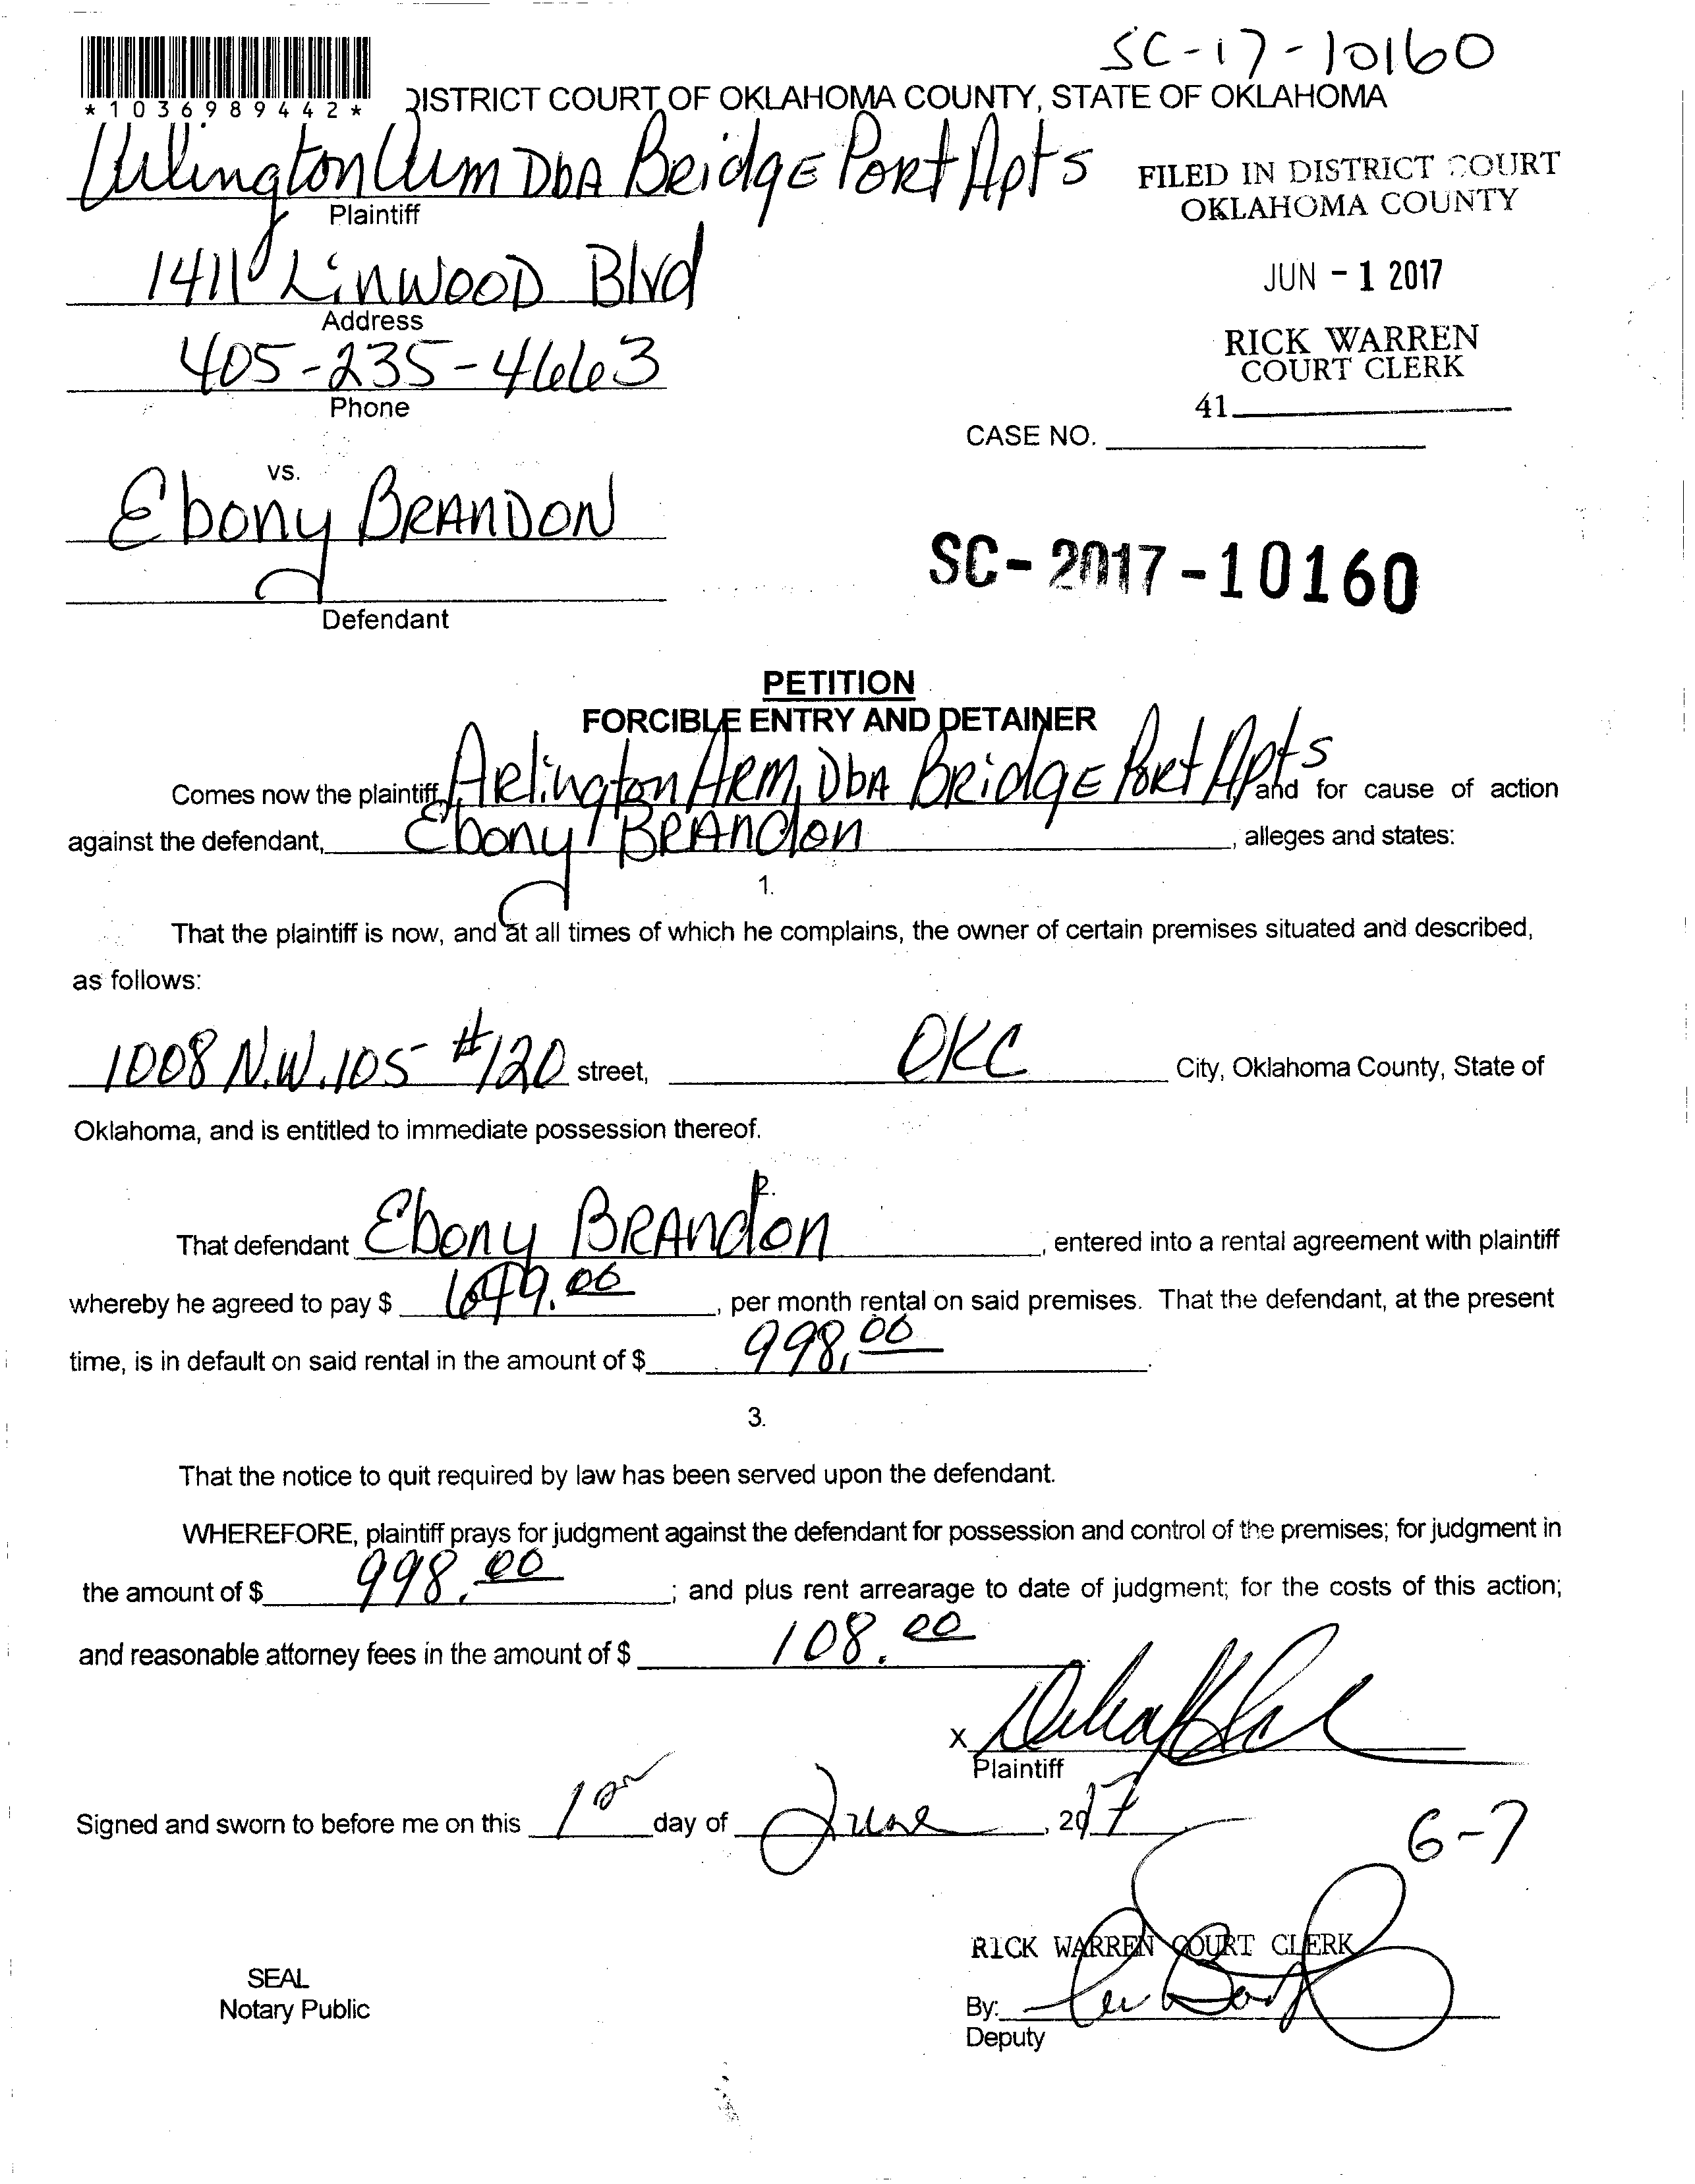 SC-17-10160
*1036989442*
DISTRICT COURT OF OKLAHOMA COUNTY, STATE OF OKLAHOMA
Arlington Arm DbA Bridge Port Apts
Plaintiff
FILED IN DISTRICT COURT
OKLAHOMA COUNTY
1411 Linwood Blvd
Address
JUN - 1 2017
405-235-4663
Phone
RICK WARREN
COURT CLERK
41
CASE NO.
vs.
Ebony BRANDON
Defendant
SC- 2017 -10160
PETITION
FORCIBLE ENTRY AND DETAINER
Comes now the plaintiff, Arlington Arm, DbA Bridge Port Apts and for cause of action
against the defendant, Ebony Brandon, alleges and states:
1.
That the plaintiff is now, and at all times of which he complains, the owner of certain premises situated and described,
as follows:
1008 N.W. 105 #120 street, OKC City, Oklahoma County, State of
Oklahoma, and is entitled to immediate possession thereof.
2.
That defendant Ebony Brandon, entered into a rental agreement with plaintiff
whereby he agreed to pay $ 649.00, per month rental on said premises. That the defendant, at the present
time, is in default on said rental in the amount of $ 998.00.
3.
That the notice to quit required by law has been served upon the defendant.
WHEREFORE, plaintiff prays for judgment against the defendant for possession and control of the premises; for judgment in
the amount of $ 998.00; and plus rent arrearage to date of judgment; for the costs of this action;
and reasonable attorney fees in the amount of $ 108.00
X
Plaintiff
Signed and sworn to before me on this 1 day of June, 2017
6-7
RICK WARREN COURT CLERK
SEAL
Notary Public
By:
Deputy